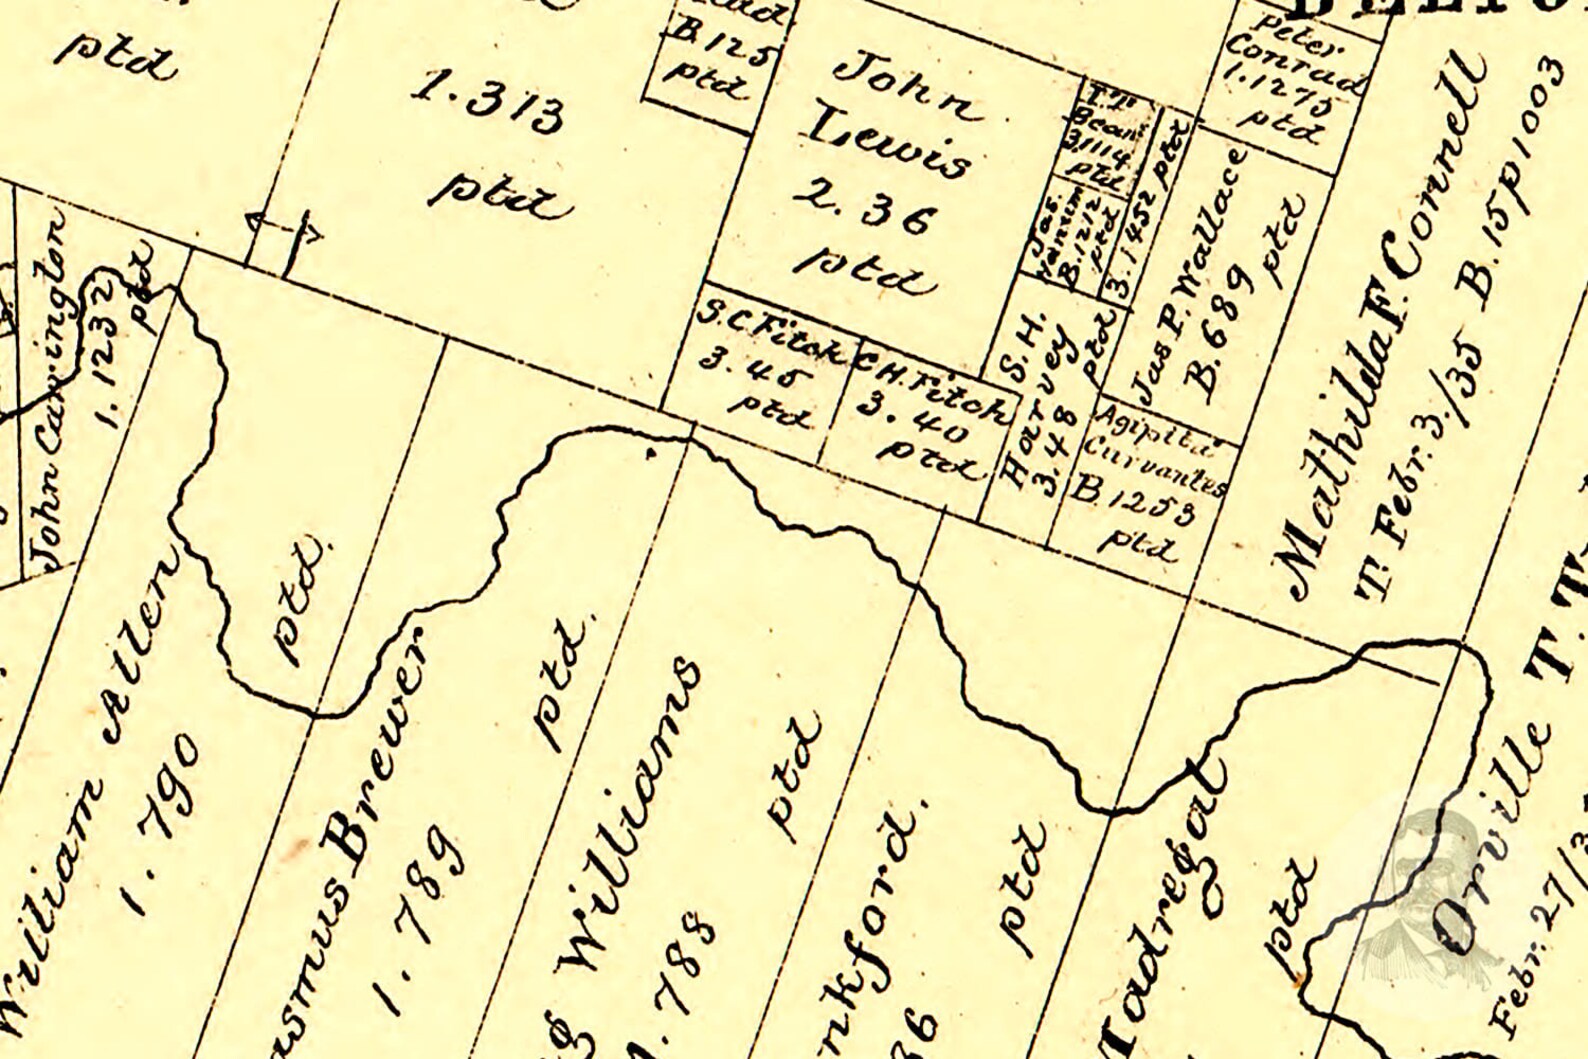 ptd
1.313
ptd
B.125
ptd
John
Lewis
2.36
ptd
Peter
Conrad
1.1275
ptd
3.1114
ptd
Jas.
B.1212
ptd
3.1452 ptd
Jas P. Wallace
B.689
ptd
Mathilda F. Connell
T. Febr. 3/35 B.15 p1003
John Carrington
1.1232
ptd
S.C. Fitch
3.45
ptd
C H. Fitch
3.40
ptd
S. H.
Harvey
3.48
ptd
Agipita
Curvantes
B.1253
ptd
William Allen
1.790
ptd.
asmus Brewer
1.789
ptd.
g Williams
1.788
ptd
nkford.
36
ptd
Madregal
ptd
Orville T. T
Febr. 27/3